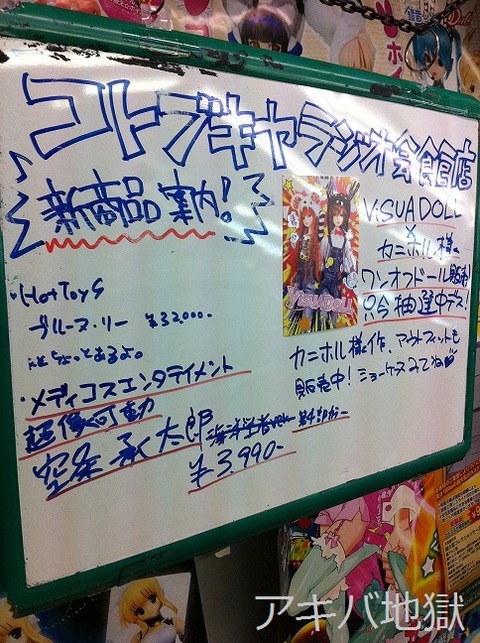 コトブキヤラジオ会館店
新商品案内!
VISUADOLL
×
カニホル様
ワンオフドール販売!
只今抽選中デス!
VISUADOLL
・HotToyS
ブルース・リー ¥32,000-
ちょっとあるよ。
カニホル様作、アウトフィットも
販売中!ショーケースみてね
・メディコスエンタテイメント
超像可動
空条承太郎
¥3,990-
アキバ地獄